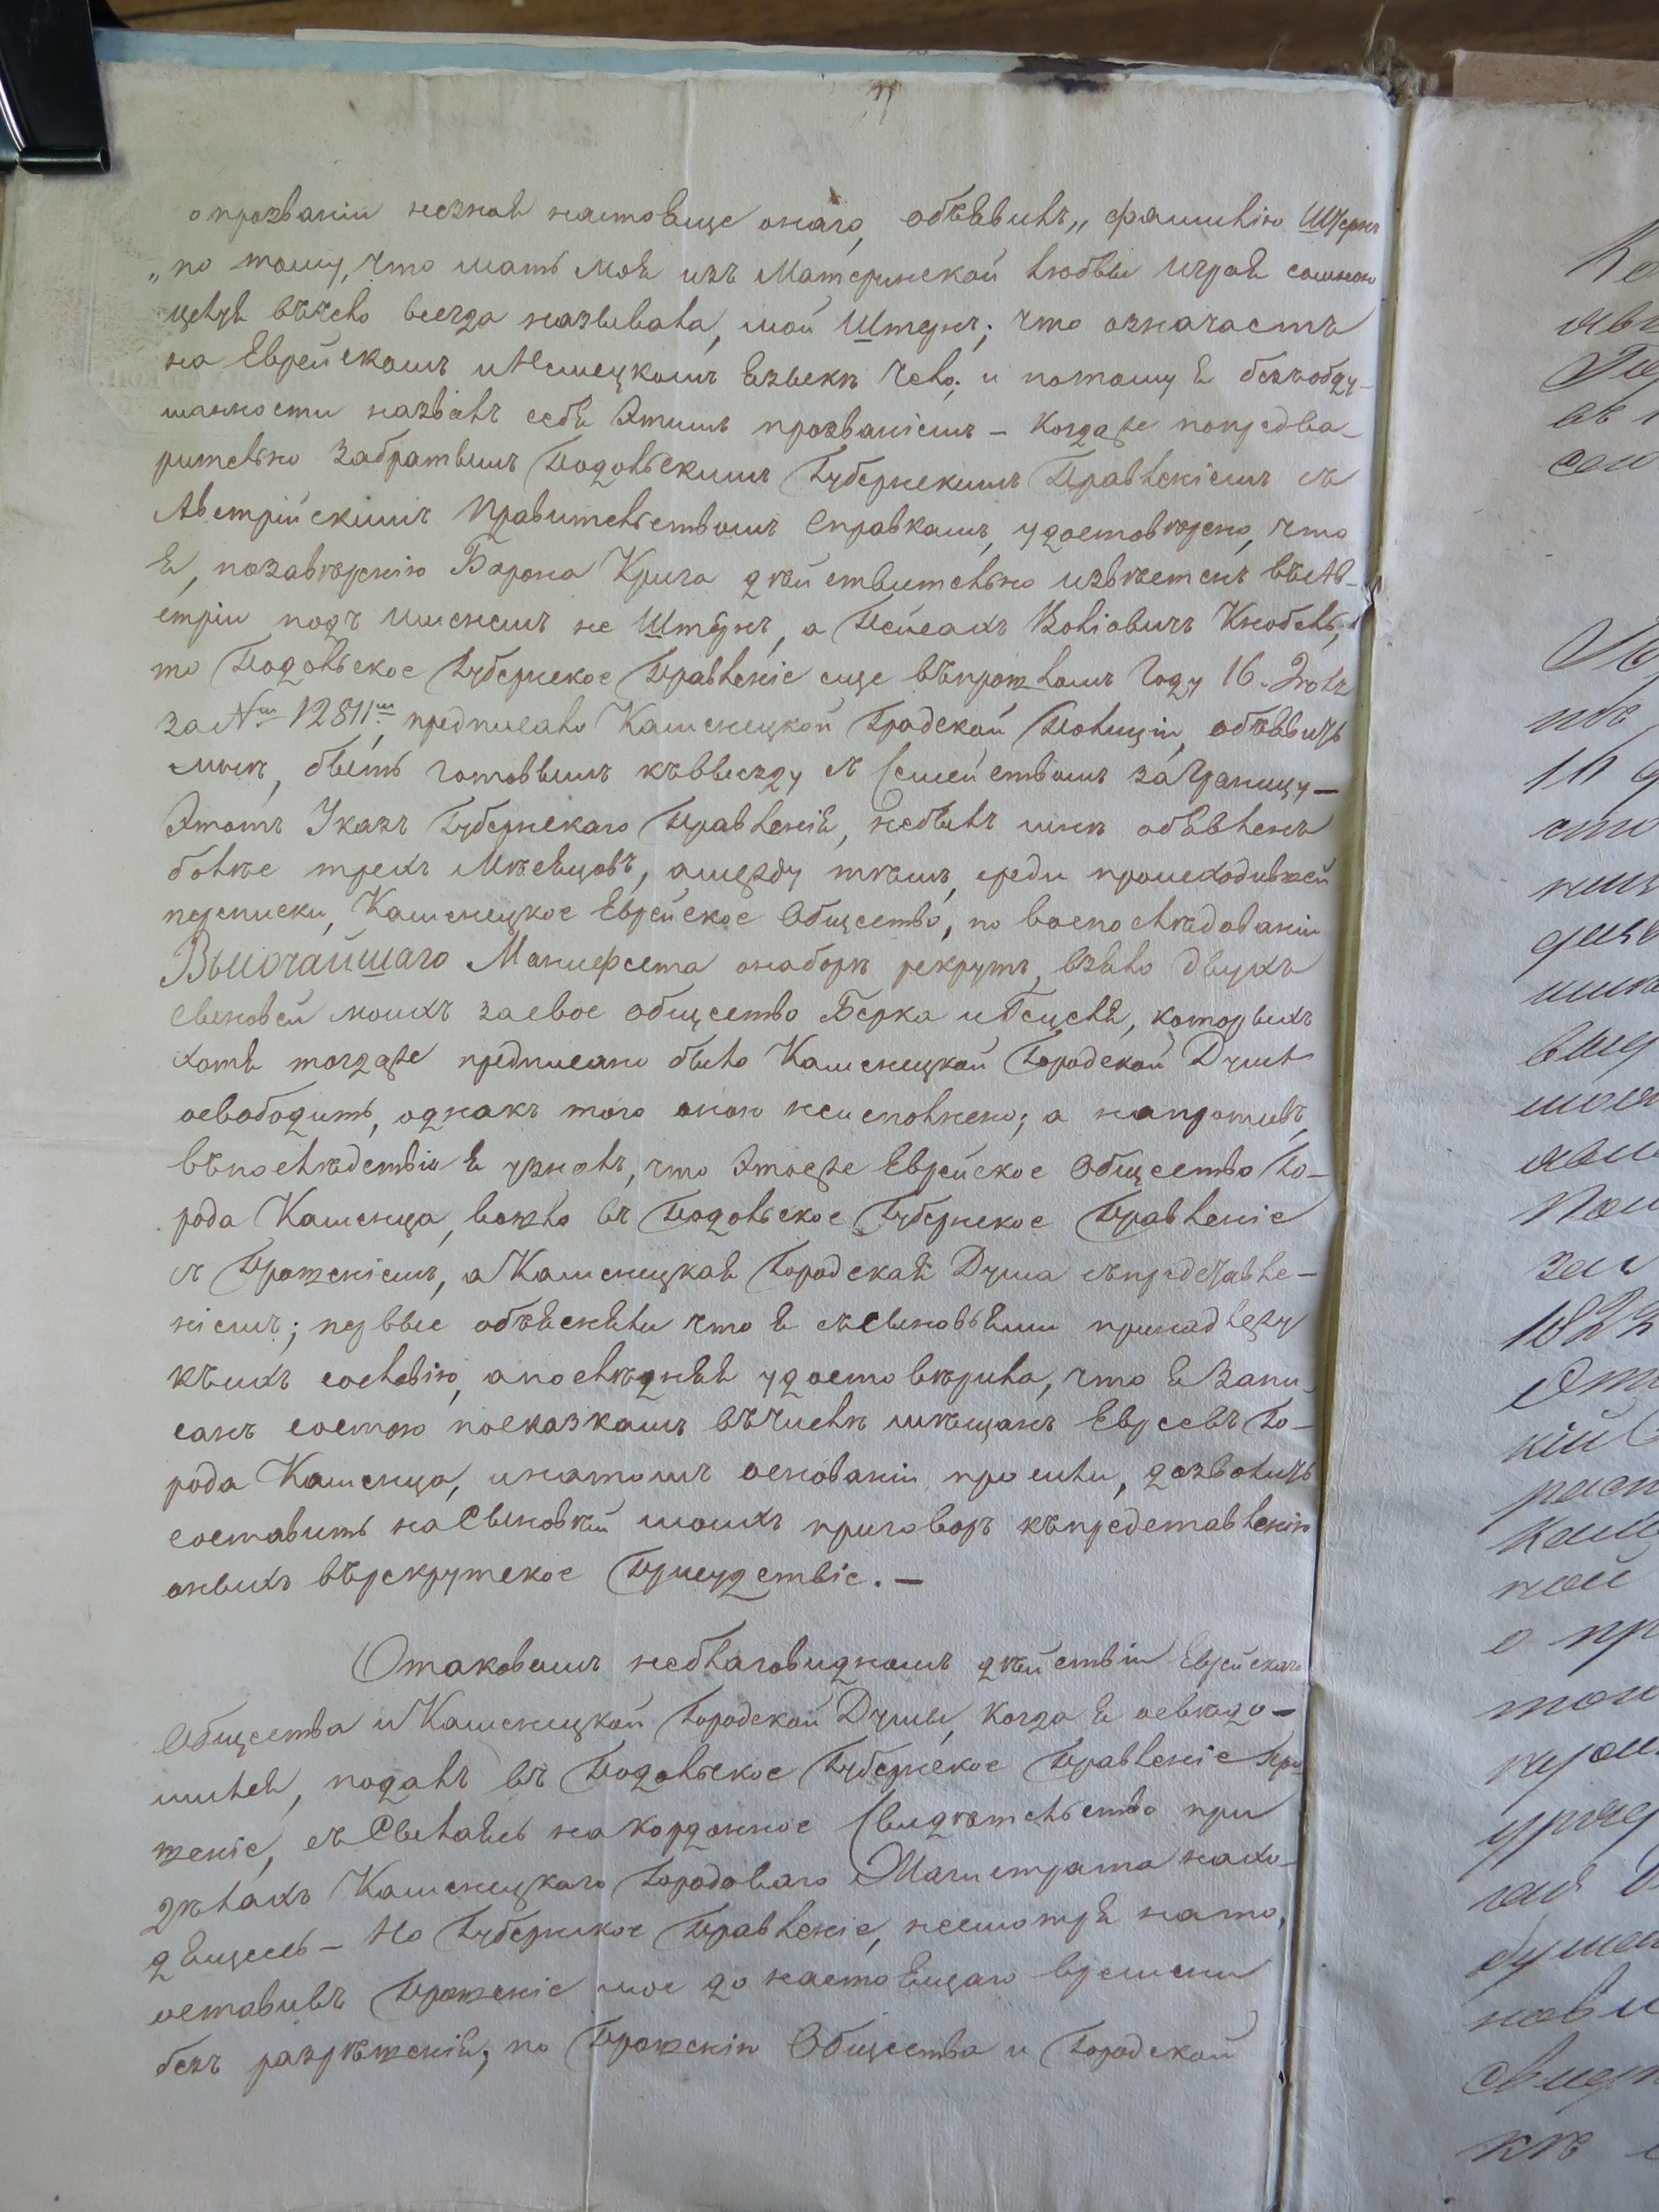 о прозваніи незная настояще онаго, объявилъ „ фамилію Штернъ
„ по тому, что мать моя изъ Материнской любви играя со мною
целуя въчело всегда называла, мой Штернъ; что означаетъ
на Еврейскомъ и Немецкомъ языкѣ чело; и потому я безъобду-
манности назвалъ себя Этимъ прозваніемъ — Когдаже попредва-
рительно забратымъ Подольскимъ Губернскимъ Правленіемъ съ
Австрійскимъ Правительствомъ Справкамъ, удостовѣрено, что
я, позавѣренію Барона Крига дѣйствительно извѣстенъ въАв-
стріи подъ имянемъ не Штернъ, а Пейсахъ Воліовичъ Кнобель,
то Подольское Губернское Правленіе еще въпрошломъ Году 16. Іюля
за №м 12811м, предписало Каменецкой Градской Полиціи, объявить
мнѣ, быть готовымъ къвыезду съ Семействомъ заГраницу —
Этотъ Указъ Губернскаго Правленія, небылъ мнѣ объявленъ
болѣе трехъ Мѣсяцовъ, амежду тѣмъ, среди происходившей
переписки, Каменецкое Еврейское Общество, по воспослѣдованіи
Высочайшаго Манифеста онаборѣ рекрутъ, взяло двухъ
сыновей моихъ засвое общество Берка иПецеля, которыхъ
хотя тогдаже предписано было Каменецкой Городской Думѣ
освободить, однакъ того оною неисполнено; а напротивъ,
въпослѣдствіи я узналъ, что Этоеже Еврейское Общество Го-
рода Каменца, вошло въ Подольское Губернское Правленіе
съ Прошеніемъ, аКаменецкая Городская Дума съпредставле-
ніемъ; первые объясняли что я съСыновьями принадлежу
къихъ сословію, апослѣдняя удостовѣрила, что я Запи-
санъ состою посказкамъ въЧислѣ мѣщанъ Евреевъ Го-
рода Каменца, инатомъ основаніи просили, дозволить
составить наСыновѣй моихъ приговоръ къпредставленію
оныхъ върекрутское Присудствіе. —
Отаковомъ неблаговидномъ дѣйствіи Еврейскаго
Общества иКаменецкой Городской Думы, когда я освѣдо-
мился, подалъ въ Подольское Губернское Правленіе Про-
шеніе, съСылаясь накордонное Свидѣтельство при
дѣлахъ Каменецкаго Городоваго Магистрата нахо-
дящеесь — Но Губернское Правленіе, несмотря нато,
оставивъ Прошеніе мое до настоящаго времени
безъ разрѣшенія, по Прошенію Общества и Городской